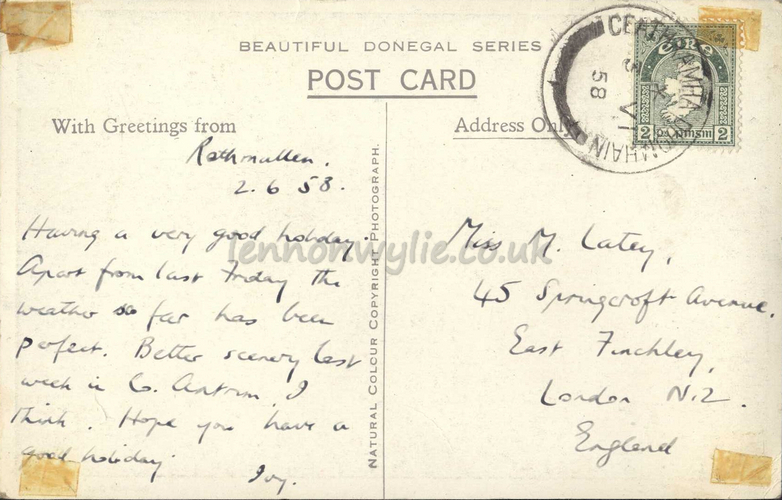 BEAUTIFUL DONEGAL SERIES
POST CARD
With Greetings from
Address Only
Rathmullen.
2.6 58.
Having a very good holiday.
Apart from last Friday the
weather so far has been
perfect. Better scenery last
week in Co. Antrim, I
think. Hope you have a
good holiday.
Joy.
NATURAL COLOUR COPYRIGHT PHOTOGRAPH.
Miss M. Latey,
45 Springcroft Avenue,
East Finchley,
London N.2.
England
éire
2 2
58
lennonwylie.co.uk